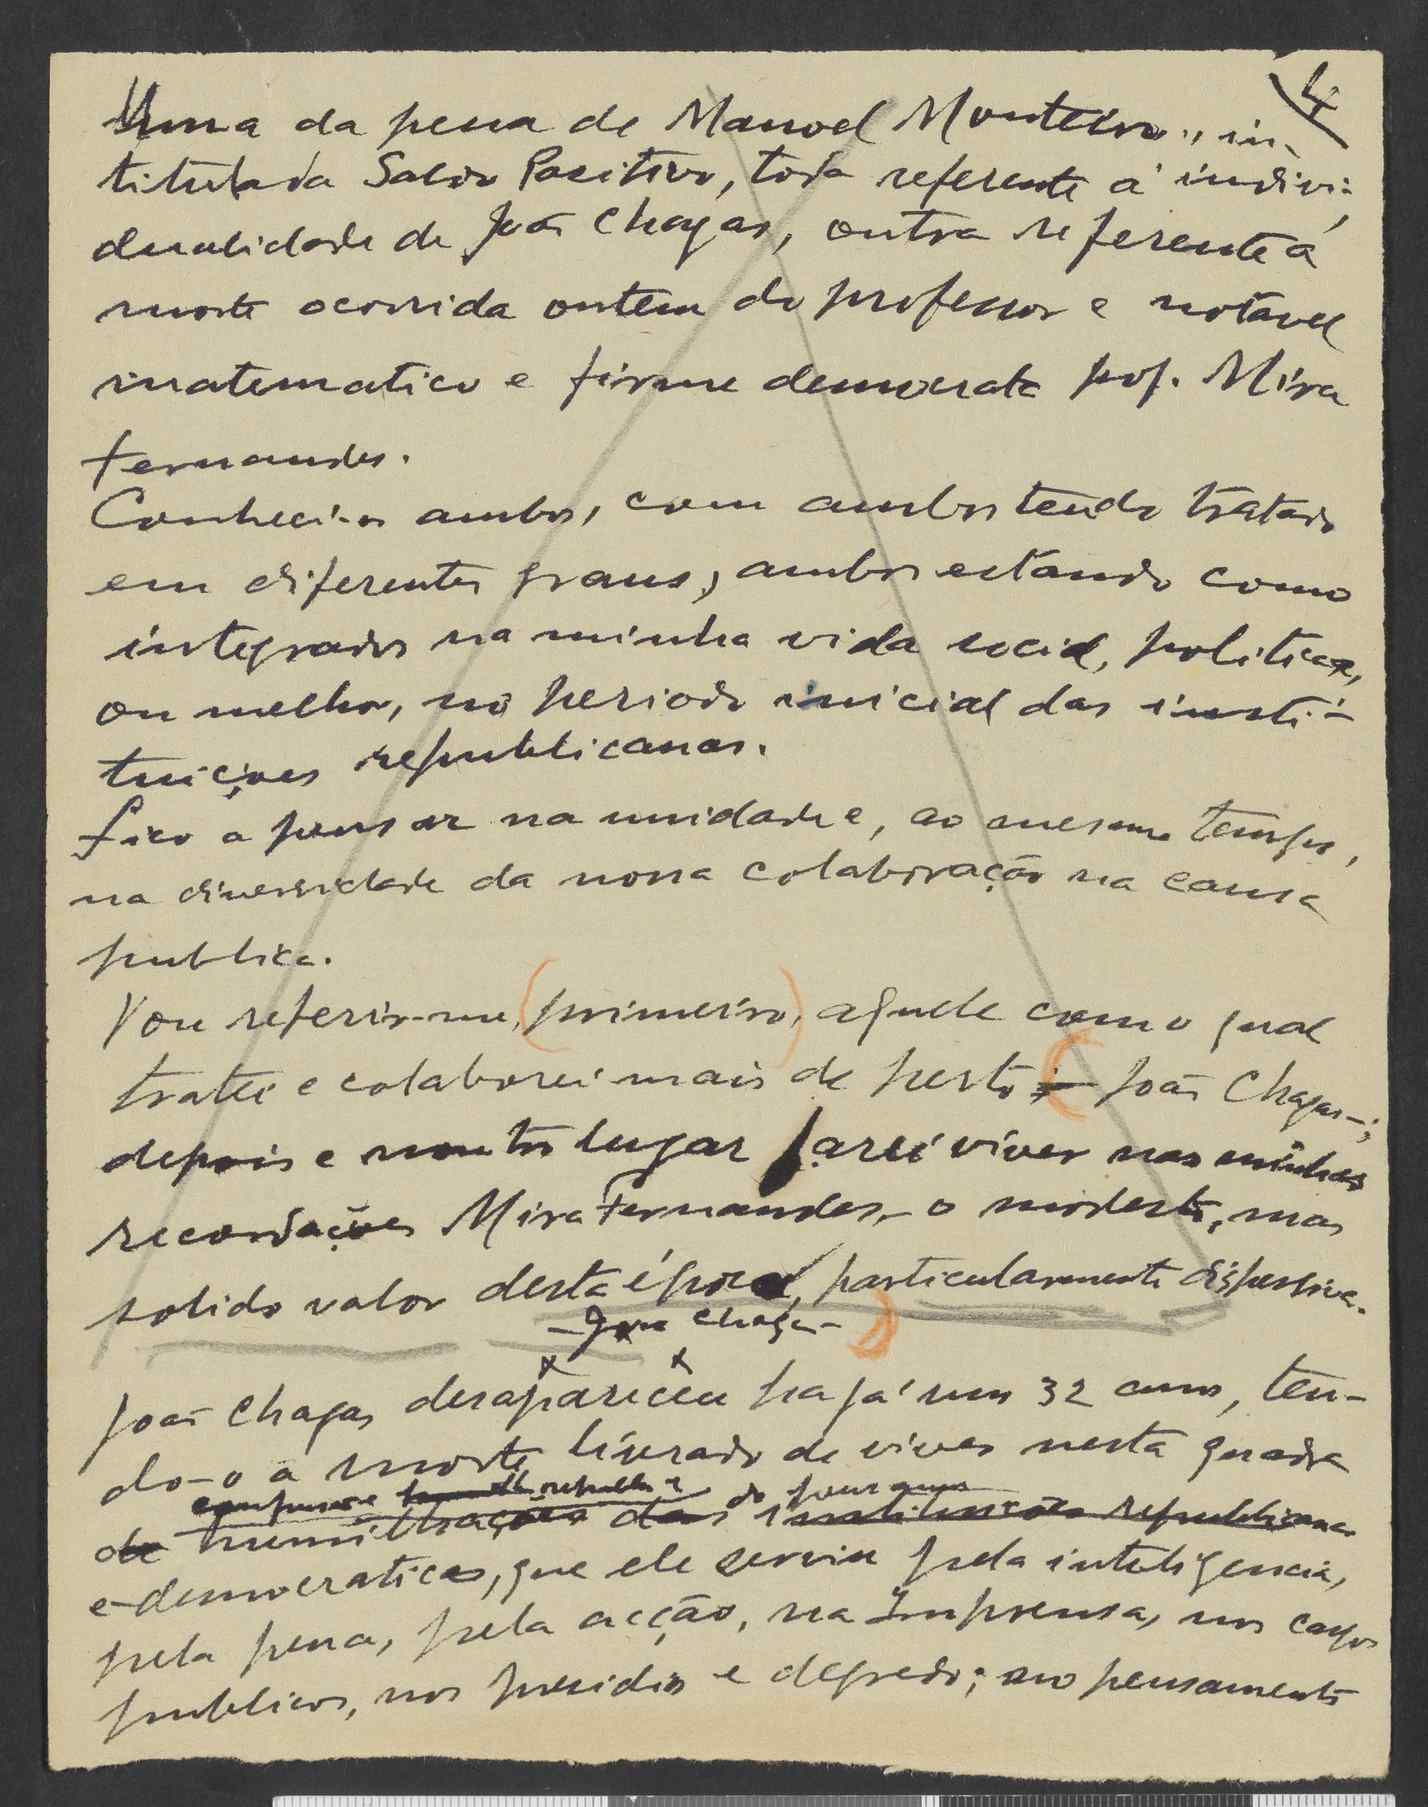 4
Uma da pena de Manoel Monteiro, in-
titulada Saldo Positivo, toda referente á indivi-
dualidade de João Chagas, outra referente á
morte ocorrida ontem do professor e notavel
matematico e firme democrata prof. Mira
Fernandes.
Conheci-os ambos, com ambos tendo tratado
em diferentes graus, ambos estando como
integrados na minha vida social, politica,
ou melhor, no periodo inicial das insti-
tuições republicanas.
Fico a pensar na unidade e, ao mesmo tempo,
na diversidade da nossa colaboração na causa
publica.
Vou referir-me, (primeiro), aquele com o qual
tratei e colaborei mais de perto - João Chagas -;
depois e noutro lugar farei viver nas minhas
recordações Mira Fernandes, o modesto, mas
solido valor desta época, particularmente dispersiva.
- João Chagas -
João Chagas desapareceu ha já uns 32 anos, ten-
do-o a morte livrado de viver nesta quadra
do
de humilhações das instituições republicanas
e democraticas, que ele serviu pela inteligencia,
pela pena, pela acção, na Imprensa, nos cargos
publicos, nos presidios e degredo; no pensamento